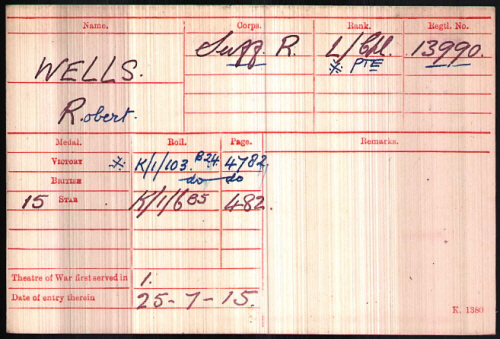 Name. Corps. Rank. Regtl. No.
WELLS. Suff. R. L/Cpl. 13990.
※ PTE
Robert.
Medal. Roll. Page. Remarks.
VICTORY ※ K/1/103. B24. 4782
BRITISH do do
15 STAR K/1/6B5 482.
Theatre of War first served in 1.
Date of entry therein 25-7-15.
K. 1380